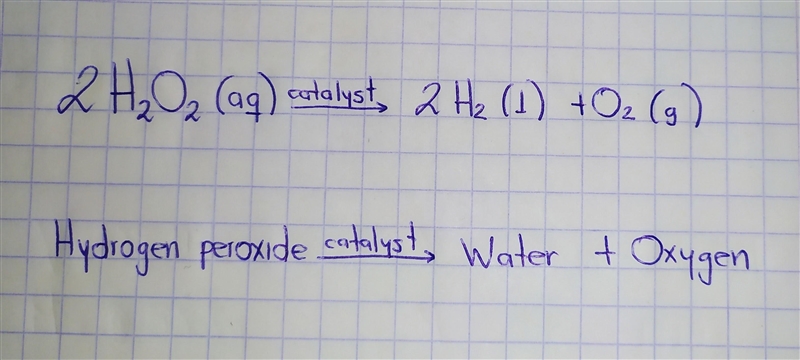 2H₂O₂ (aq) catalyst → 2H₂ (l) + O₂ (g)
Hydrogen peroxide catalyst → Water + Oxygen